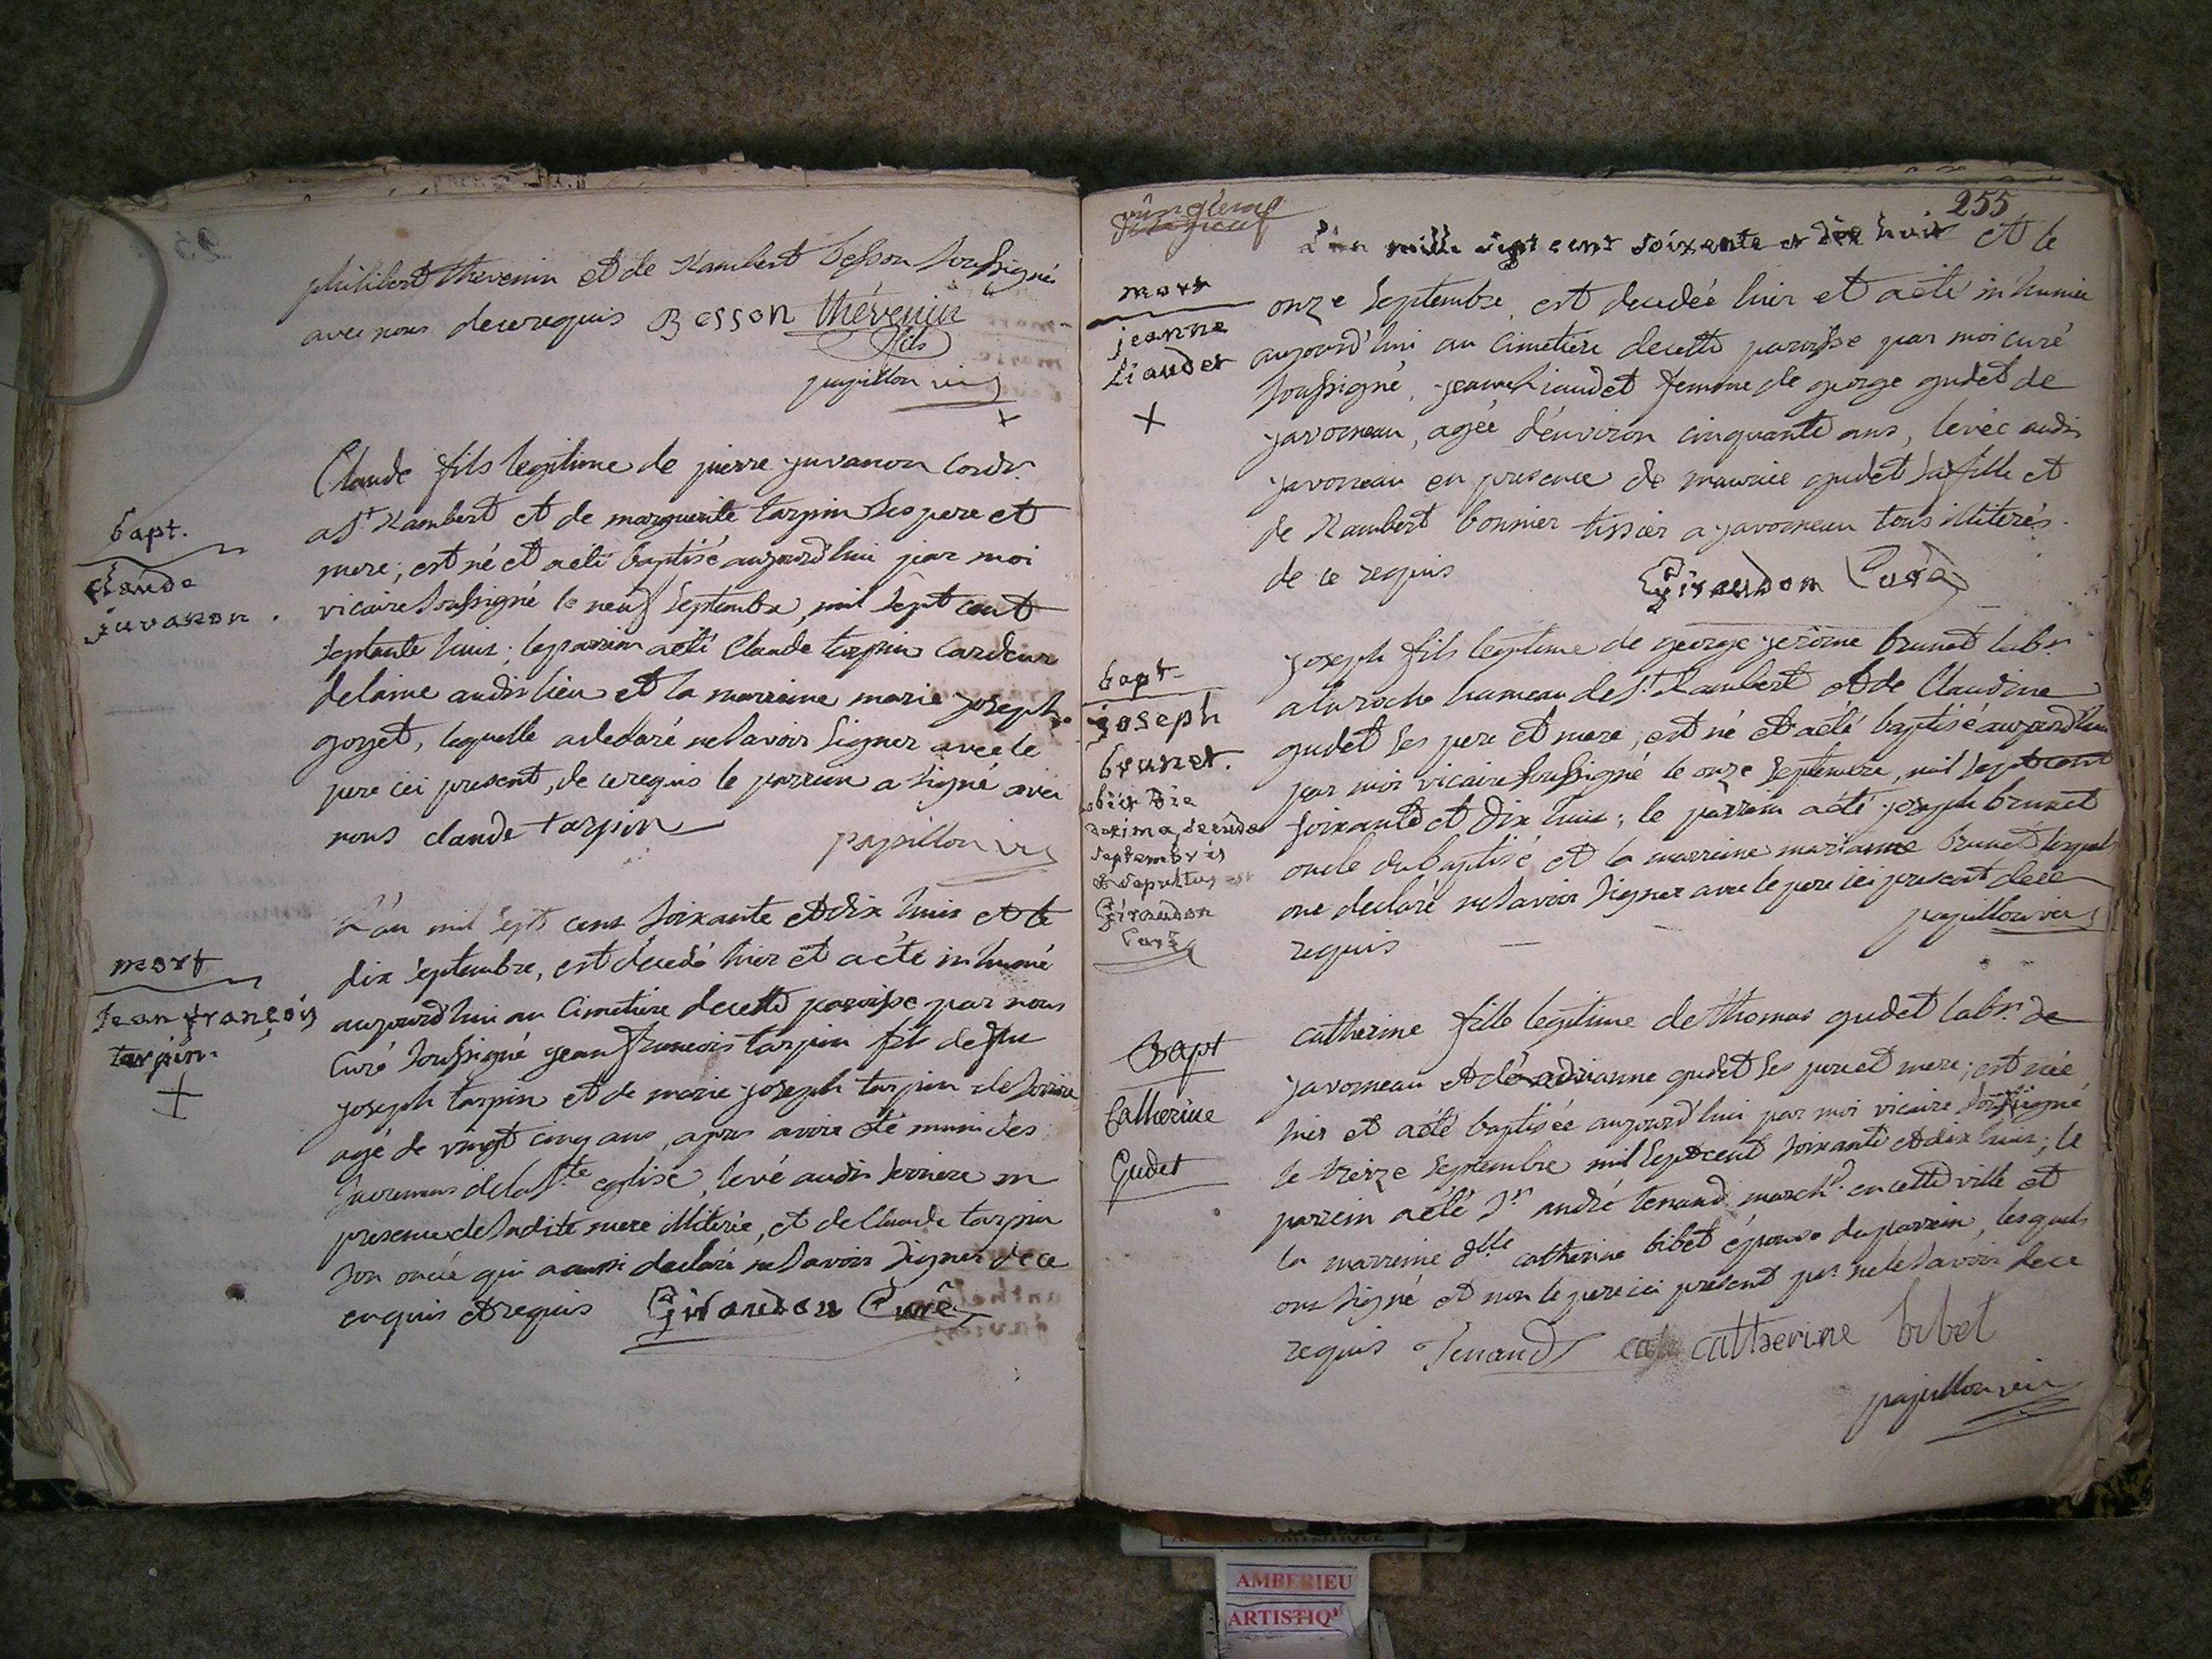 philibert thevenin et de Rambert besson soussignés
avec nous de ce requis Besson thévenin
fils
papillon vic
bapt.
claude
juvanon.
Claude fils legitime de pierre juvanon cordr.
a St Rambert et de marguerite tarpin ses pere et
mere, est né et a été baptisé aujourd'hui par moi
vicaire soussigné le neuf septembre, mil sept cent
septante huit; le parrein a été Claude tarpin cardeur
de laine audit lieu et la marreine marie joseph
goyet, laquelle a declaré ne savoir signer avec le
pere ici present, de ce requis le parrein a signé avec
nous claude tarpin
papillon vic
mort
Jean françois
tarpin.
L'an mil sept cent soixante et dix huit et le
dix septembre, est decedé hier et a été inhumé
aujourd'hui au Cimetiere de cette paroisse par nous
Curé soussigné jean francois tarpin fils de feu
joseph tarpin et de marie joseph tarpin de serriere
agé de vingt cinq ans, apres avoir été muni des
sacremens de la Ste eglise, levé audit serriere en
presence de ladite mere illiterée, et de Claude tarpin
son oncle qui a aussi declaré ne savoir signer de ce
enquis et requis Giraudon Curé
255
mort
jeanne
Liaudet
L'an mille sept cent soixante et dix huit et le
onze septembre, est decedée hier et a été inhumée
aujourd'hui au Cimetiere de cette paroisse par moi curé
soussigné, jeanne Liaudet femme de george gudet de
javorneau, agée d'environ cinquante ans, levée audit
javorneau en presence de maurice gudet sa fille et
de Rambert bonnier tissier a javorneau tous illiterés.
de ce requis Giraudon Curé
bapt.
joseph
brunet.
obiit die
decima secunda
septembris
et sepultus est
Giraudon
Curé
joseph fils legitime de george jerôme brunet labr.
a la roche hameau de St. Rambert et de Claudine
gudet ses pere et mere, est né et a été baptisé aujourd'hui
par moi vicaire soussigné le onze septembre, mil sept cent
soixante et dix huit; le parrein a été joseph brunet
oncle du baptisé et la marreine marianne brunet lesquels
ont declaré ne savoir signer avec le pere ici present de ce
requis papillon vic
Bapt
Catherine
Gudet
catherine fille legitime de thomas gudet labr. de
javorneau et de adrianne gudet ses pere et mere; est née
hier et a été baptisée aujourd'hui par moi vicaire soussigné
le treize septembre mil sept cent soixante et dix huit; le
parrein a été Sr. andré tenand march.d en cette ville et
la marreine dlle catherine bibet épouse du parrein, lesquels
ont signé et non le pere ici present pr. ne le savoir de ce
requis Tenand catherine bibet
papillon vic
AMBERIEU
ARTISTIQ